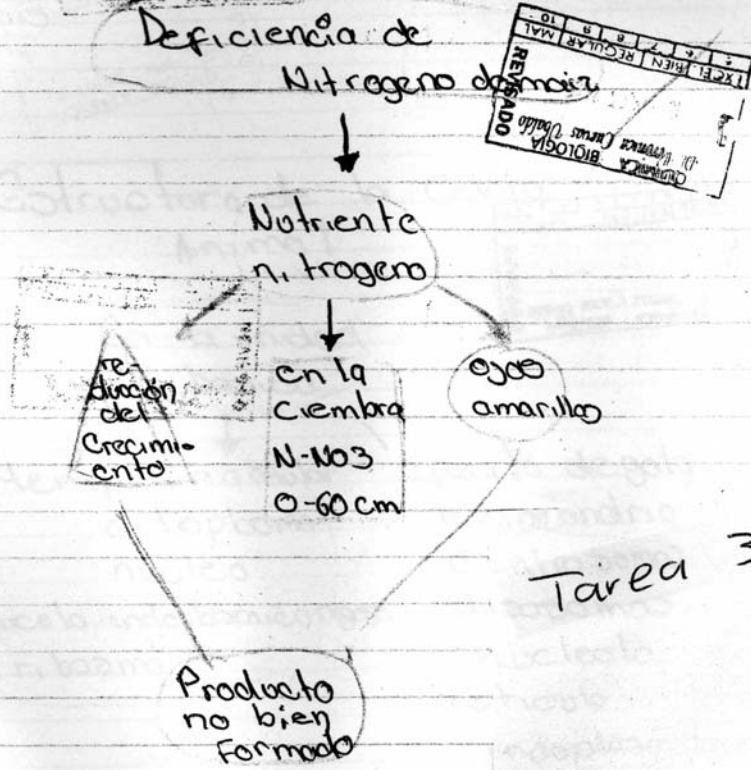 Deficiencia de
Nitrogeno de maiz
EXCEL BIEN REGULAR MAL
10 9 8 7 6 5
REVISADO
BIOLOGÍA
Cuevas Ubaldo
Nutriente
nitrogeno
re-
ducción
del
Crecimi-
ento
en la
Ciembra
N-NO3
0-60 cm
ojas
amarillas
Tarea 3
Producto
no bien
Formado